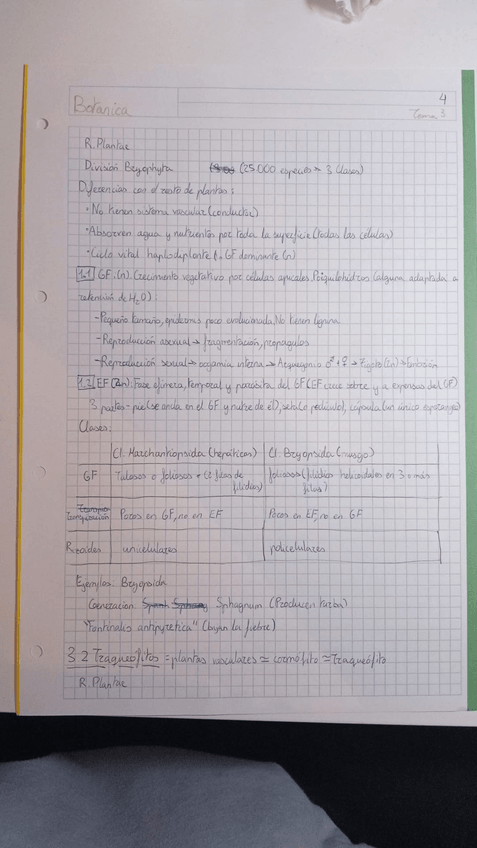 Botanica
4
Tema 3
R. Plantae
División Bryophyta (25000 especies 3 Clases)
Diferencias con el resto de plantas:
· No tienen sistema vascular (conductor)
· Absorven agua y nutrientes por toda la superficie (todas las células)
· Ciclo vital haplodiplonte GF dominante (n)
1.1 GF (n). Crecimiento vegetativo por células apicales. Poiquilohidros (alguna adaptada a
retensión de H2O):
- Pequeño tamaño, epidermis poco evolucionada, No tienen lignina
- Reproducción asexual → fragmentación, propágulos
- Reproducción sexual → oogamia interna → Arquegonio ♂ + ♀ → Zigoto (2n) → Embrión
1.2 EF (2n): Fase efímera, temporal y parásita del GF (EF crece sobre y a expensas del GF)
3 partes - pie (se ancla en el GF y nutre de él), seta (o pedículo), cápsula (un único esporangio)
Clases:
Cl. Marchantiopsida (hepáticas) Cl. Bryopsida (musgo)
GF Talosos o foliosos filas de filidios) foliosos (filidios helicoidales en 3 o más filas)
Pocos en GF, no en EF Pocos en EF, no en GF
Rizoides unicelulares policelulares
Ejemplos: Bryopsida
Sphagnum (Producen turba)
"Fontinalis antipyretica" (bajan la fiebre)
3.2 Traqueófitos = plantas vasculares ≃ cormófito ≃ Traqueófito
R. Plantae